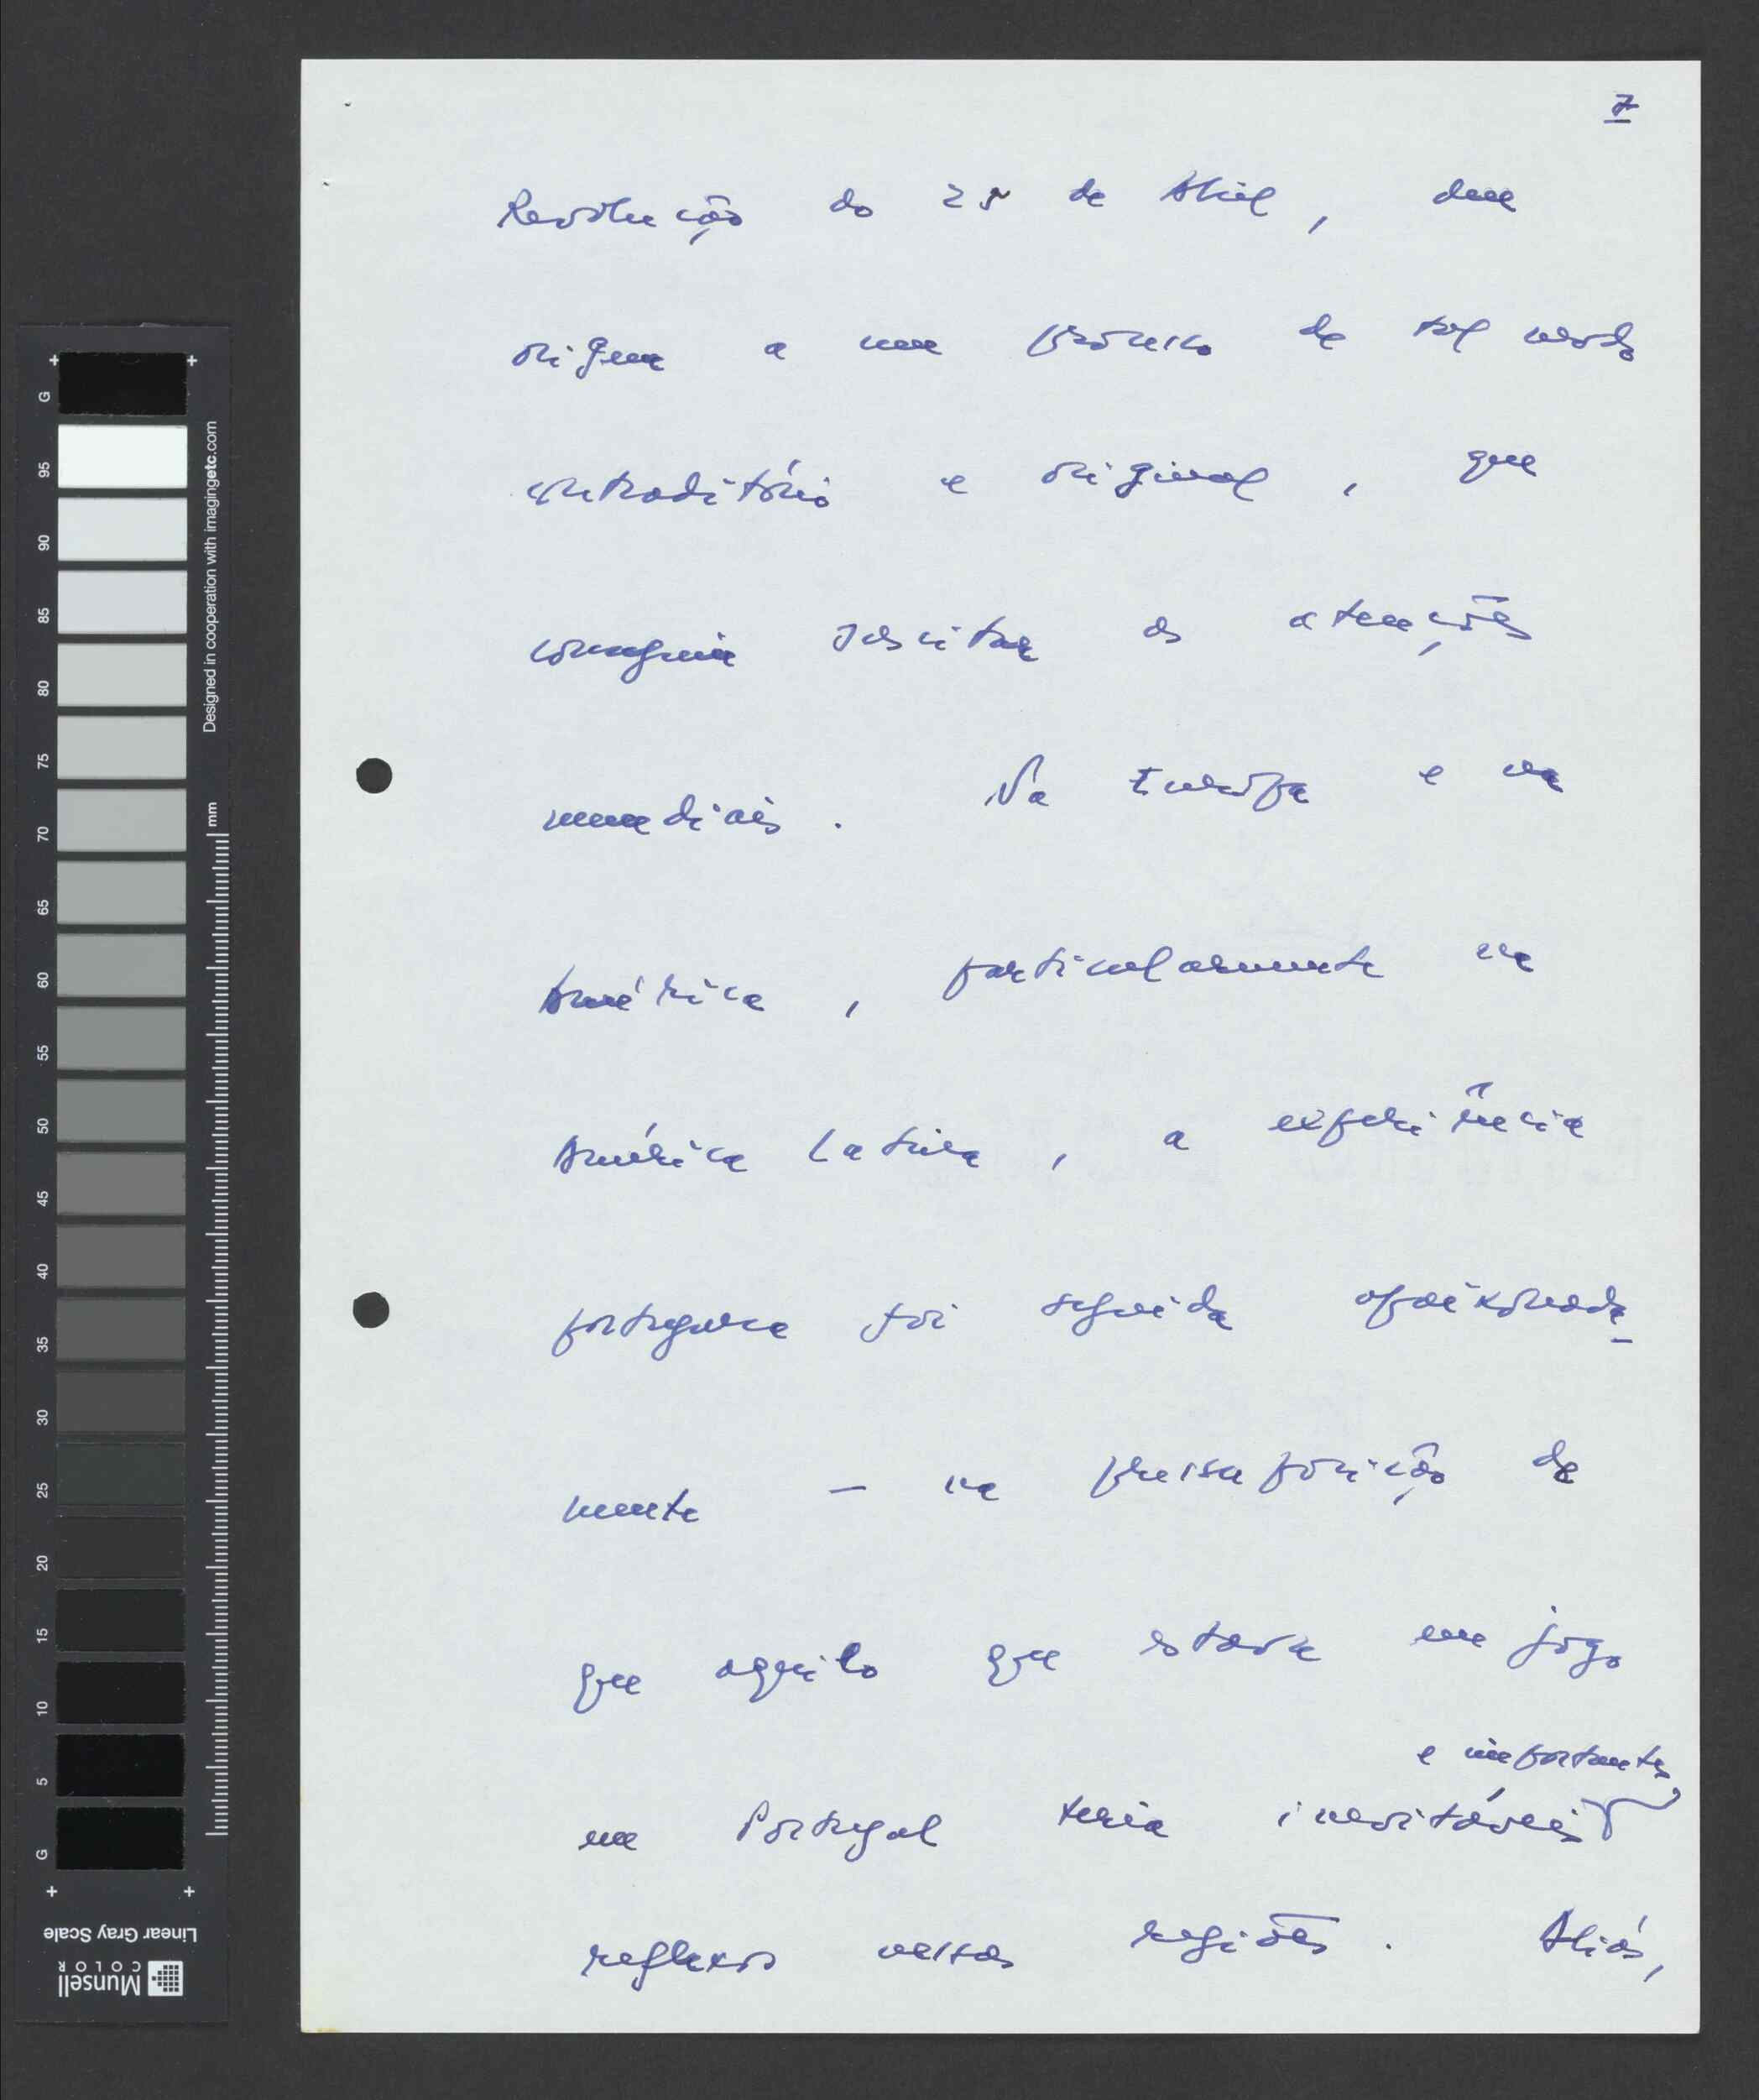 7
Revolução do 25 de Abril, deu
origem a um processo de tal modo
contraditório e original, que
conseguiu suscitar as atenções
mundiais. Na Europa e na
América, particularmente na
América Latina, a experiência
portuguesa foi seguida apaixonada-
mente – na pressuposição de
que aquilo que estava em jogo
e importantes,
em Portugal teria inevitáveis
reflexos nestas regiões. Aliás,
G
95
90
85
80
75
70
65
60
55
50
45
40
35
30
25
20
15
10
5
G
Designed in cooperation with imagingetc.com
mm
Linear Gray Scale
Munsell
COLOR